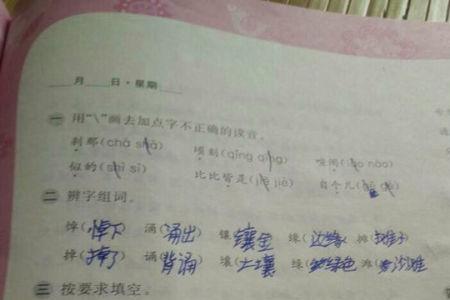 月 日·星期
一 用“\”画去加点字不正确的读音。
刹那(chà shà) 顷刻(qīng qǐng) 喧闹(lào nào)
似的(shì sì) 比比皆是(jiē jiè) 自个儿(gě gè)
二 辨字组词。
悼(悼下) 涌(涌出) 镶(镶金) 缘(边缘) 摊(摊子)
掉(掉了) 诵(背诵) 壤(土壤) 绿(绿色) 滩(沙滩)
三 按要求填空。